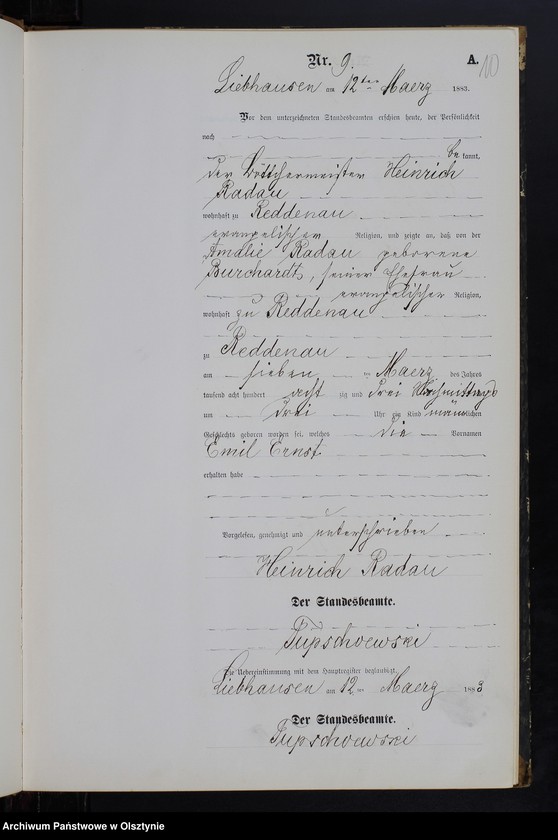 Nr. 9. A.
10
Liebhausen am 12ten Maerz 1883.
Vor dem unterzeichneten Standesbeamten erschien heute, der Persönlichkeit
nach
be kannt,
der Böttchermeister Heinrich
Radau
wohnhaft zu Reddenau
evangelischer Religion, und zeigte an, daß von der
Amalie Radau geborene
Burchardt, seiner Ehefrau
evangelischer Religion,
wohnhaft zu Reddenau
zu Reddenau
am sieben ten Maerz des Jahres
tausend acht hundert acht zig und drei Nachmittags
um drei Uhr ein Kind männlichen
Geschlechts geboren worden sei, welches die Vornamen
Emil Ernst
erhalten habe
Vorgelesen, genehmigt und unterschrieben
Heinrich Radau
Der Standesbeamte.
Die Uebereinstimmung mit dem Hauptregister beglaubigt.
Liebhausen am 12ten Maerz 1883
Der Standesbeamte.
Archiwum Państwowe w Olsztynie